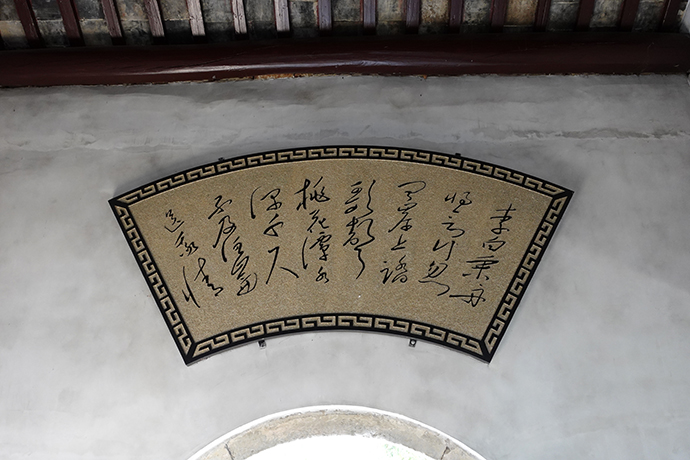 李白乘舟
将欲行忽
闻岸上踏
歌声
桃花潭水
深千尺
不及汪伦
送我情